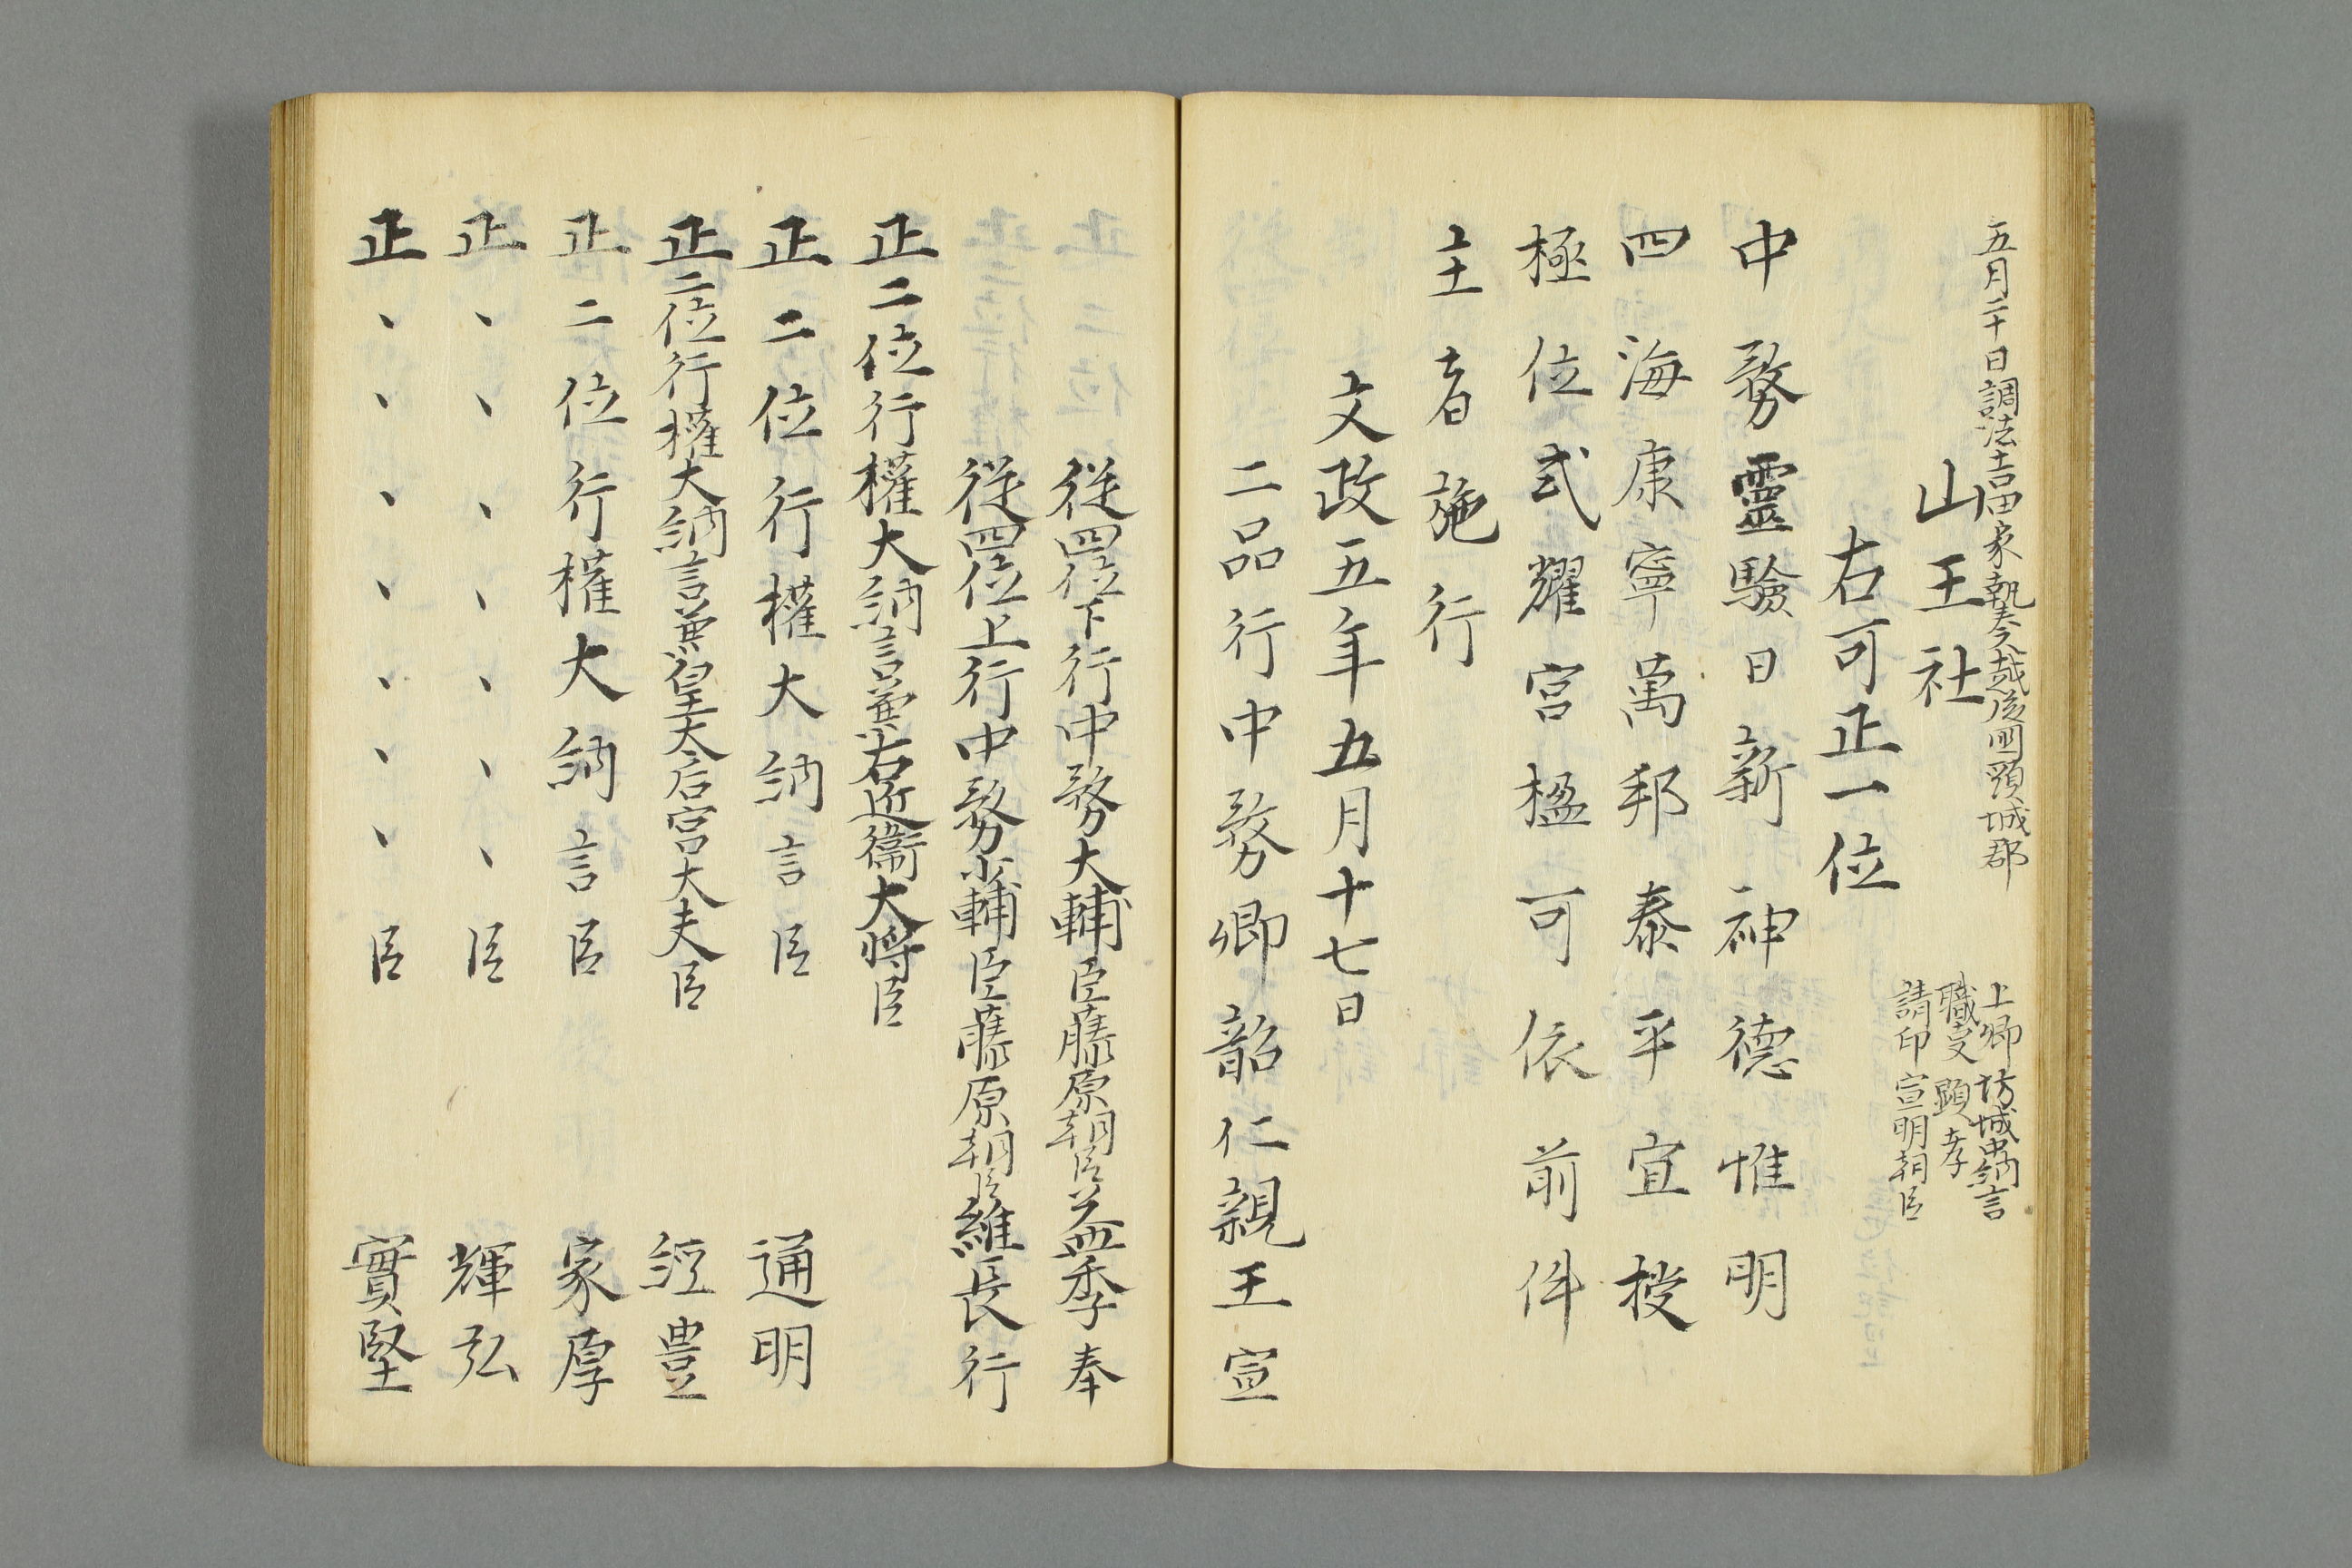 五月二十日調法吉田家執奏越後國頸城郡
山王社
上卿 坊城中納言
職事 顕孝
請印 宣明朝臣
右可正一位
中務靈驗日新神德惟明
四海康寧萬邦泰平宜授
極位式耀宮楹可依前件
主者施行
文政五年五月十七日
二品行中務卿韶仁親王宣
従四位下行中務大輔臣藤原朝臣益季奉
従四位上行中務少輔臣藤原朝臣維長行
正二位行權大納言兼右近衛大将臣
正二位行權大納言臣 通明
正二位行權大納言兼皇太后宮大夫臣 経豊
正二位行權大納言臣 家厚
正、、、、、、臣 輝弘
正、、、、、、、臣 實堅